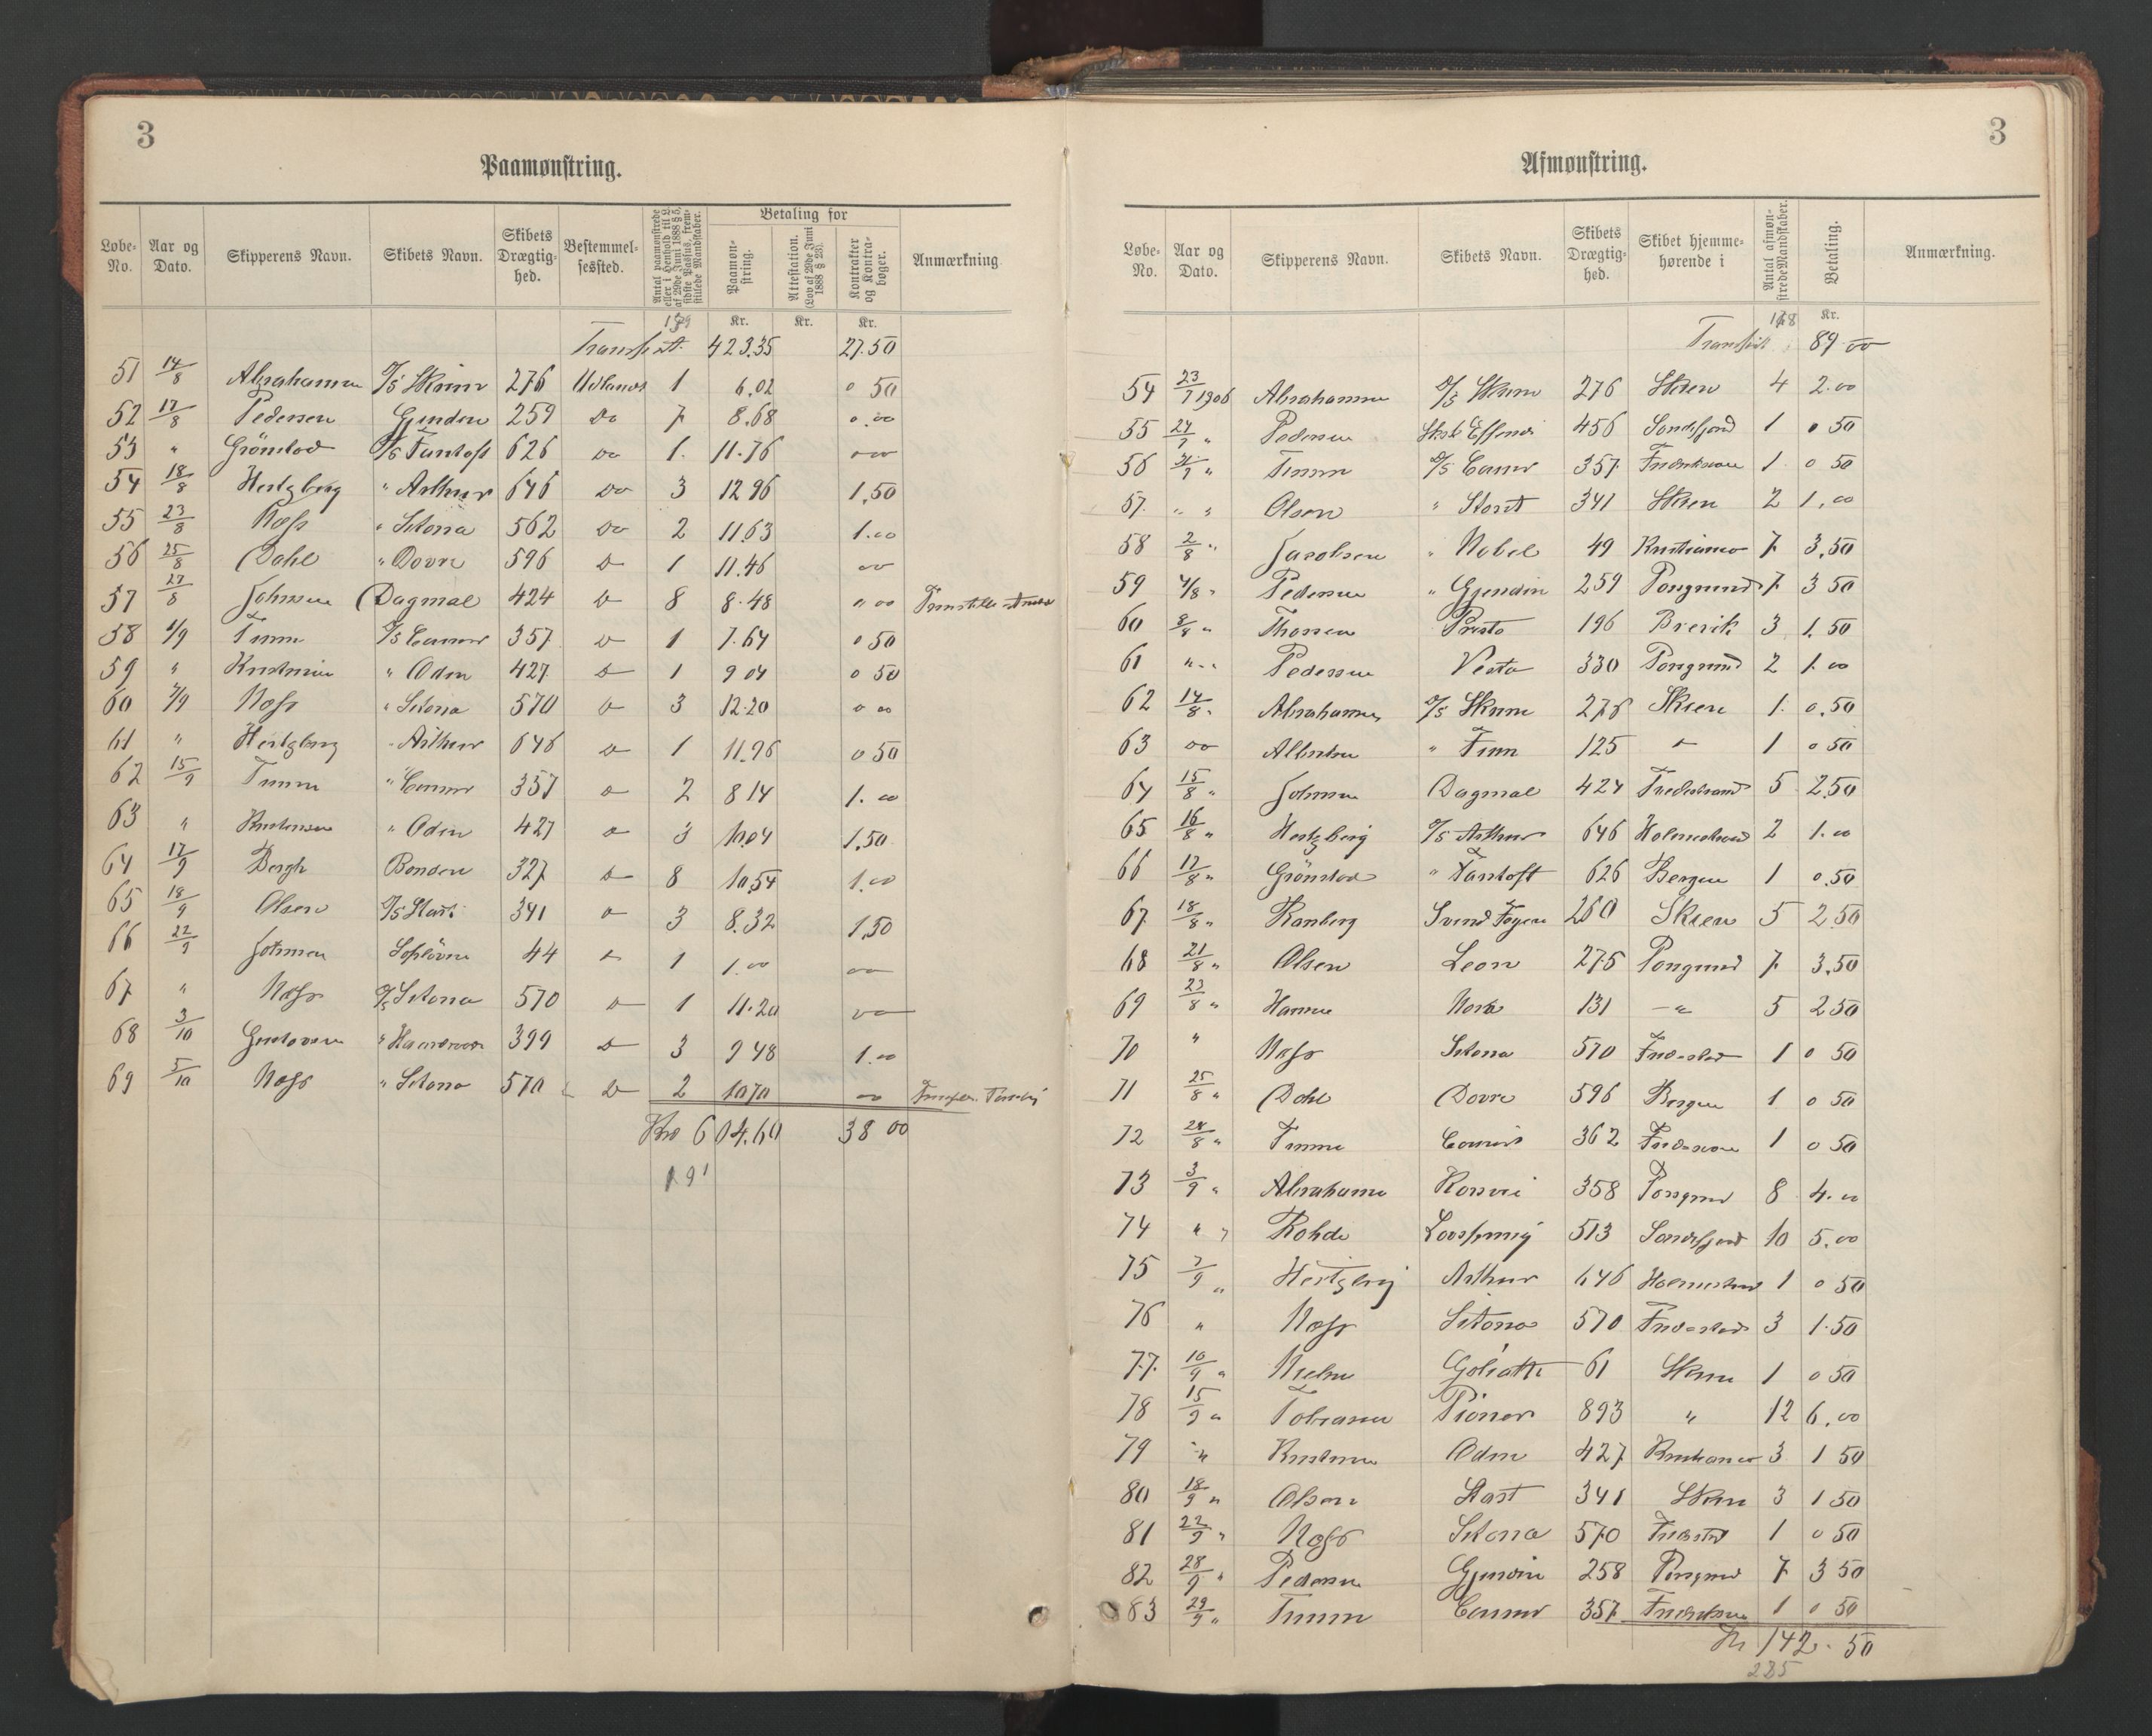 3
Paamønstring.
Løbe-No. Aar og Dato. Skipperens Navn. Skibets Navn. Skibets Drægtig-hed. Bestemmel-sessted. Antal paamønstrede eller i Henhold til L. af 29de Juni 1888 § 5, sidste Passus, frem-stillede Mandskaber. Betaling for Paamøn-string. Attestation. (Lov af 29de Juni 1888 § 23). Kontrakter og Kontra-bøger. Anmærkning
Kr. Kr. Kr.
Transport 423.35 27.50
51 14/8 Abrahamsen D/S Skien 276 Udlandet 1 6.02 0 50
52 17/8 Pedersen Gjendin 259 Do 7 8.68 0.00
53 " Grönstad D/S Fantoft 626 Do 1. 11.76
54 18/8 Hertzberg " Arthur 646 Do 3 12 96 1,50
55 23/8 Næss " Sitona 562 Do 2 11.63 1.00
56 25/8 Dahl " Dovre 596 Do 1 11.46
57 27/8 Johnsen Dagmal 424 Do 8 8.48 " 00
58 1/9 Timm D/S Comur 357 Do 1 7.64 0 50
59 " Kristensen " Odin 427 Do 1 9 04 0 50
60 7/9 Næss " Sitona 570 Do 3 12.20 0 00
61 " Hertzberg " Arthur 646 Do 1 11.96 0 50
62 15/9 Timm " Comur 357 Do 2 8 14 1.00
63 " Kristensen " Odin 427 Do 3 10.04 1,50
64 17/9 Bergh Bonden 327 Do 8 10.54 1.00
65 18/9 Olsen D/S Start 341 Do 3 8.32 1,50
66 22/9 Johnsen 44 1 1.00
67 " Næss D/S Sitona 570 Do 1 11.20
68 3/10 Gustavsen 399 Do 3 9 48 1.00
69 5/10 Næss " Sitona 570 Do 2 10 70
Kr 604.60 38 00
191
3
Afmønstring.
Løbe-No. Aar og Dato. Skipperens Navn. Skibets Navn. Skibets Drægtig-hed. Skibet hjemme-hørende i Antal afmøn-strede Mandskaber. Betaling. Anmærkning.
178 Kr.
Transport 89.00
54 23/7 1906 Abrahamsen D/S Skien 276 Skien 4 2.00
55 27/7 " Pedersen Skb Effendi 456 Sandefjord 1 0 50
56 31/7 " Timm D/S Comur 357 1 0 50
57. " " Olsen " Start 341 Skien 2 1.00
58 2/8 " Jacobsen " Nobel 49 Kristiania 7 3,50
59 4/8 " Pedersen " Gjendin 259 Porsgrund 7 3 50
60 8/8 " Thorsen Presto 196 Brevik 3 1.50
61 " " Pedersen Vesta 330 Porsgrund 2 1.00
62 14/8 " Abrahamsen D/S Skien 276 Skien 1. 0.50
63 Do Albertsen " Finn 125 1 0 50
64 15/8 " Johnsen Dagmal 424 5 2.50
65 16/8 " Hertzberg D/S Arthur 646 Holmestrand 2 1.00
66 17/8 " Grönstad " Fantoft 626 Bergen 1 0.50
67 18/8 " Ranberg Svend Foyen 260 Skien 5 2.50
68 21/8 " Olsen Leon 275 Porsgrund 7 3,50
69 23/8 " Hansen Nora 131 — " 5 2 50
70 " Næss Sitona 570 Fredrikstad 1 0 50
71 25/8 " Dahl Dovre 596 Bergen 1 0 50
72 28/8 " Timm Comur 362 1 0 50
73 3/9 " Abrahamsen 358 Porsgrund 8 4.00
74 " " Rohde 513 Sandefjord 10 5.00
75 7/9 " Hertzberg Arthur 646 Holmestrand 1 0 50
76 " Næss Sitona 570 Fredrikstad 3 1.50
77. 10/9 " Nielsen Goliath 61 Skien 1 0 50
78 15/9 " Tobiasen Pioner 893 " 12 6.00
79 " Kristensen Odin 427 Kristiania 3 1 50
80 18/9 " Olsen Start 341 Skien 3 1 50
81 22/9 " Næss Sitona 570 Fredrikstad 1 0 50
82 28/9 " Pedersen Gjendin 258 Porsgrund 7 3 50
83 29/9 " Timm Comur 357 1 0 50
Kr 142.50
285